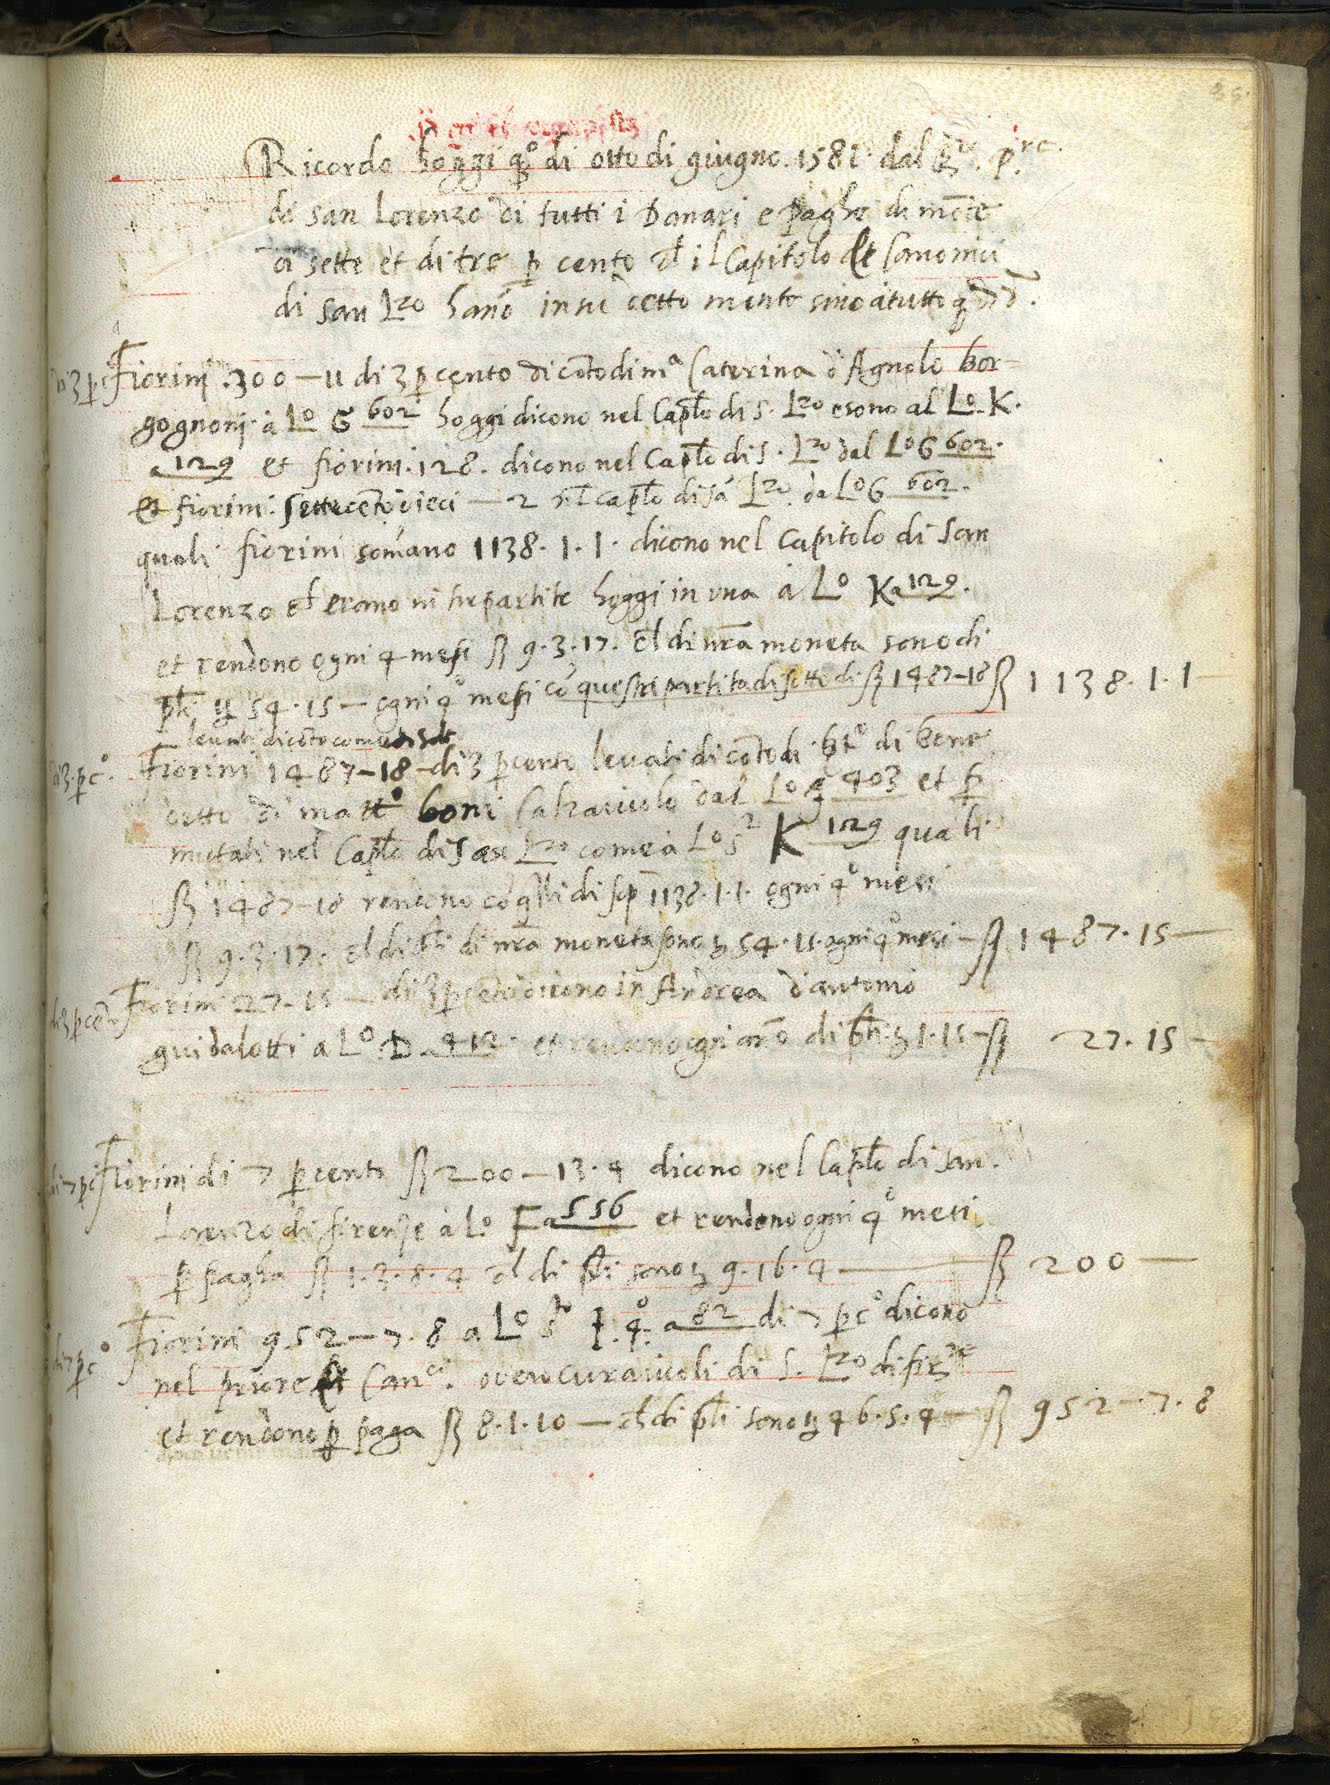 35
Ricordo hoggi q.º di otto di giugno. 1581 dal p.re
di san Lorenzo di tutti i Danari e paghe di monte
di sette et di tre p cento ch il Capitolo et Canonici
di san Lzo hano in su detto monte sino a tutto q dì
di 3 p cº Fiorini .300 — 11 di 3 p cento di coto di mª Caterina d Agnolo bor-
gognoni à Lº G 602 hoggi dicono nel Caplo di S. Lzo e sono al Lº K.
a 129 et fiorini .128. dicono nel Caplo di S. Lzo dal Lº G 602.
et fiorini settecento dieci — 2 nl caplo di sa Lzo da Lº G 602.
quali fiorini somano 1138. 1. 1. dicono nel capitolo di san
Lorenzo et erano in tre partite hoggi in una à Lº K a 129.
et rendono ogni 4 mesi 9. 3. 17. ch di nra moneta sono di
pli 54. 15 — ogni qº mesi cō questa partita di sotto di 1487-18 1138. 1. 1
levati di conto come di sotto
di 3 p cº. Fiorini 1487-18 di 3 p cento levati di conto di di bene
detto di matº boni Calzaiuolo dal Lº 403 et
mutati nel Caplo di San Lzo come à Lº S 2 K 129 quali
1487-18 rendono cō qlli di sop 1138. 1. 1. ogni qº mesi
9. 3. 17. ch di pli di nra moneta sono 54. 15. ogni qº mesi — 1487. 15 —
di 3 p cento Fiorini 27-15 — di 3 p cento dicono in Andrea d antonio
guidalotti a Lº D a 412. et rendono ogni ano di pli 1. 15 — 27. 15 —
di 7 p cº Fiorini di 7 p cento 200 — 13. 4 dicono nel Caplo di san.
Lorenzo di firenze à Lº. F a 556 et rendono ogni qº mesi
p pagha 1. 3. 8. 4 ch di pli sono 9. 16. 4 — 200 —
di 7 p cº Fiorini 952 — 7. 8 a Lº qº. a 82 di 7 p cº dicono
nel priore et Canci. overo curaiuoli di S. Lzo di firze
et rendono p paga 8. 1. 10 — ch di pli sono 46. 5. 4 — 952 — 7. 8